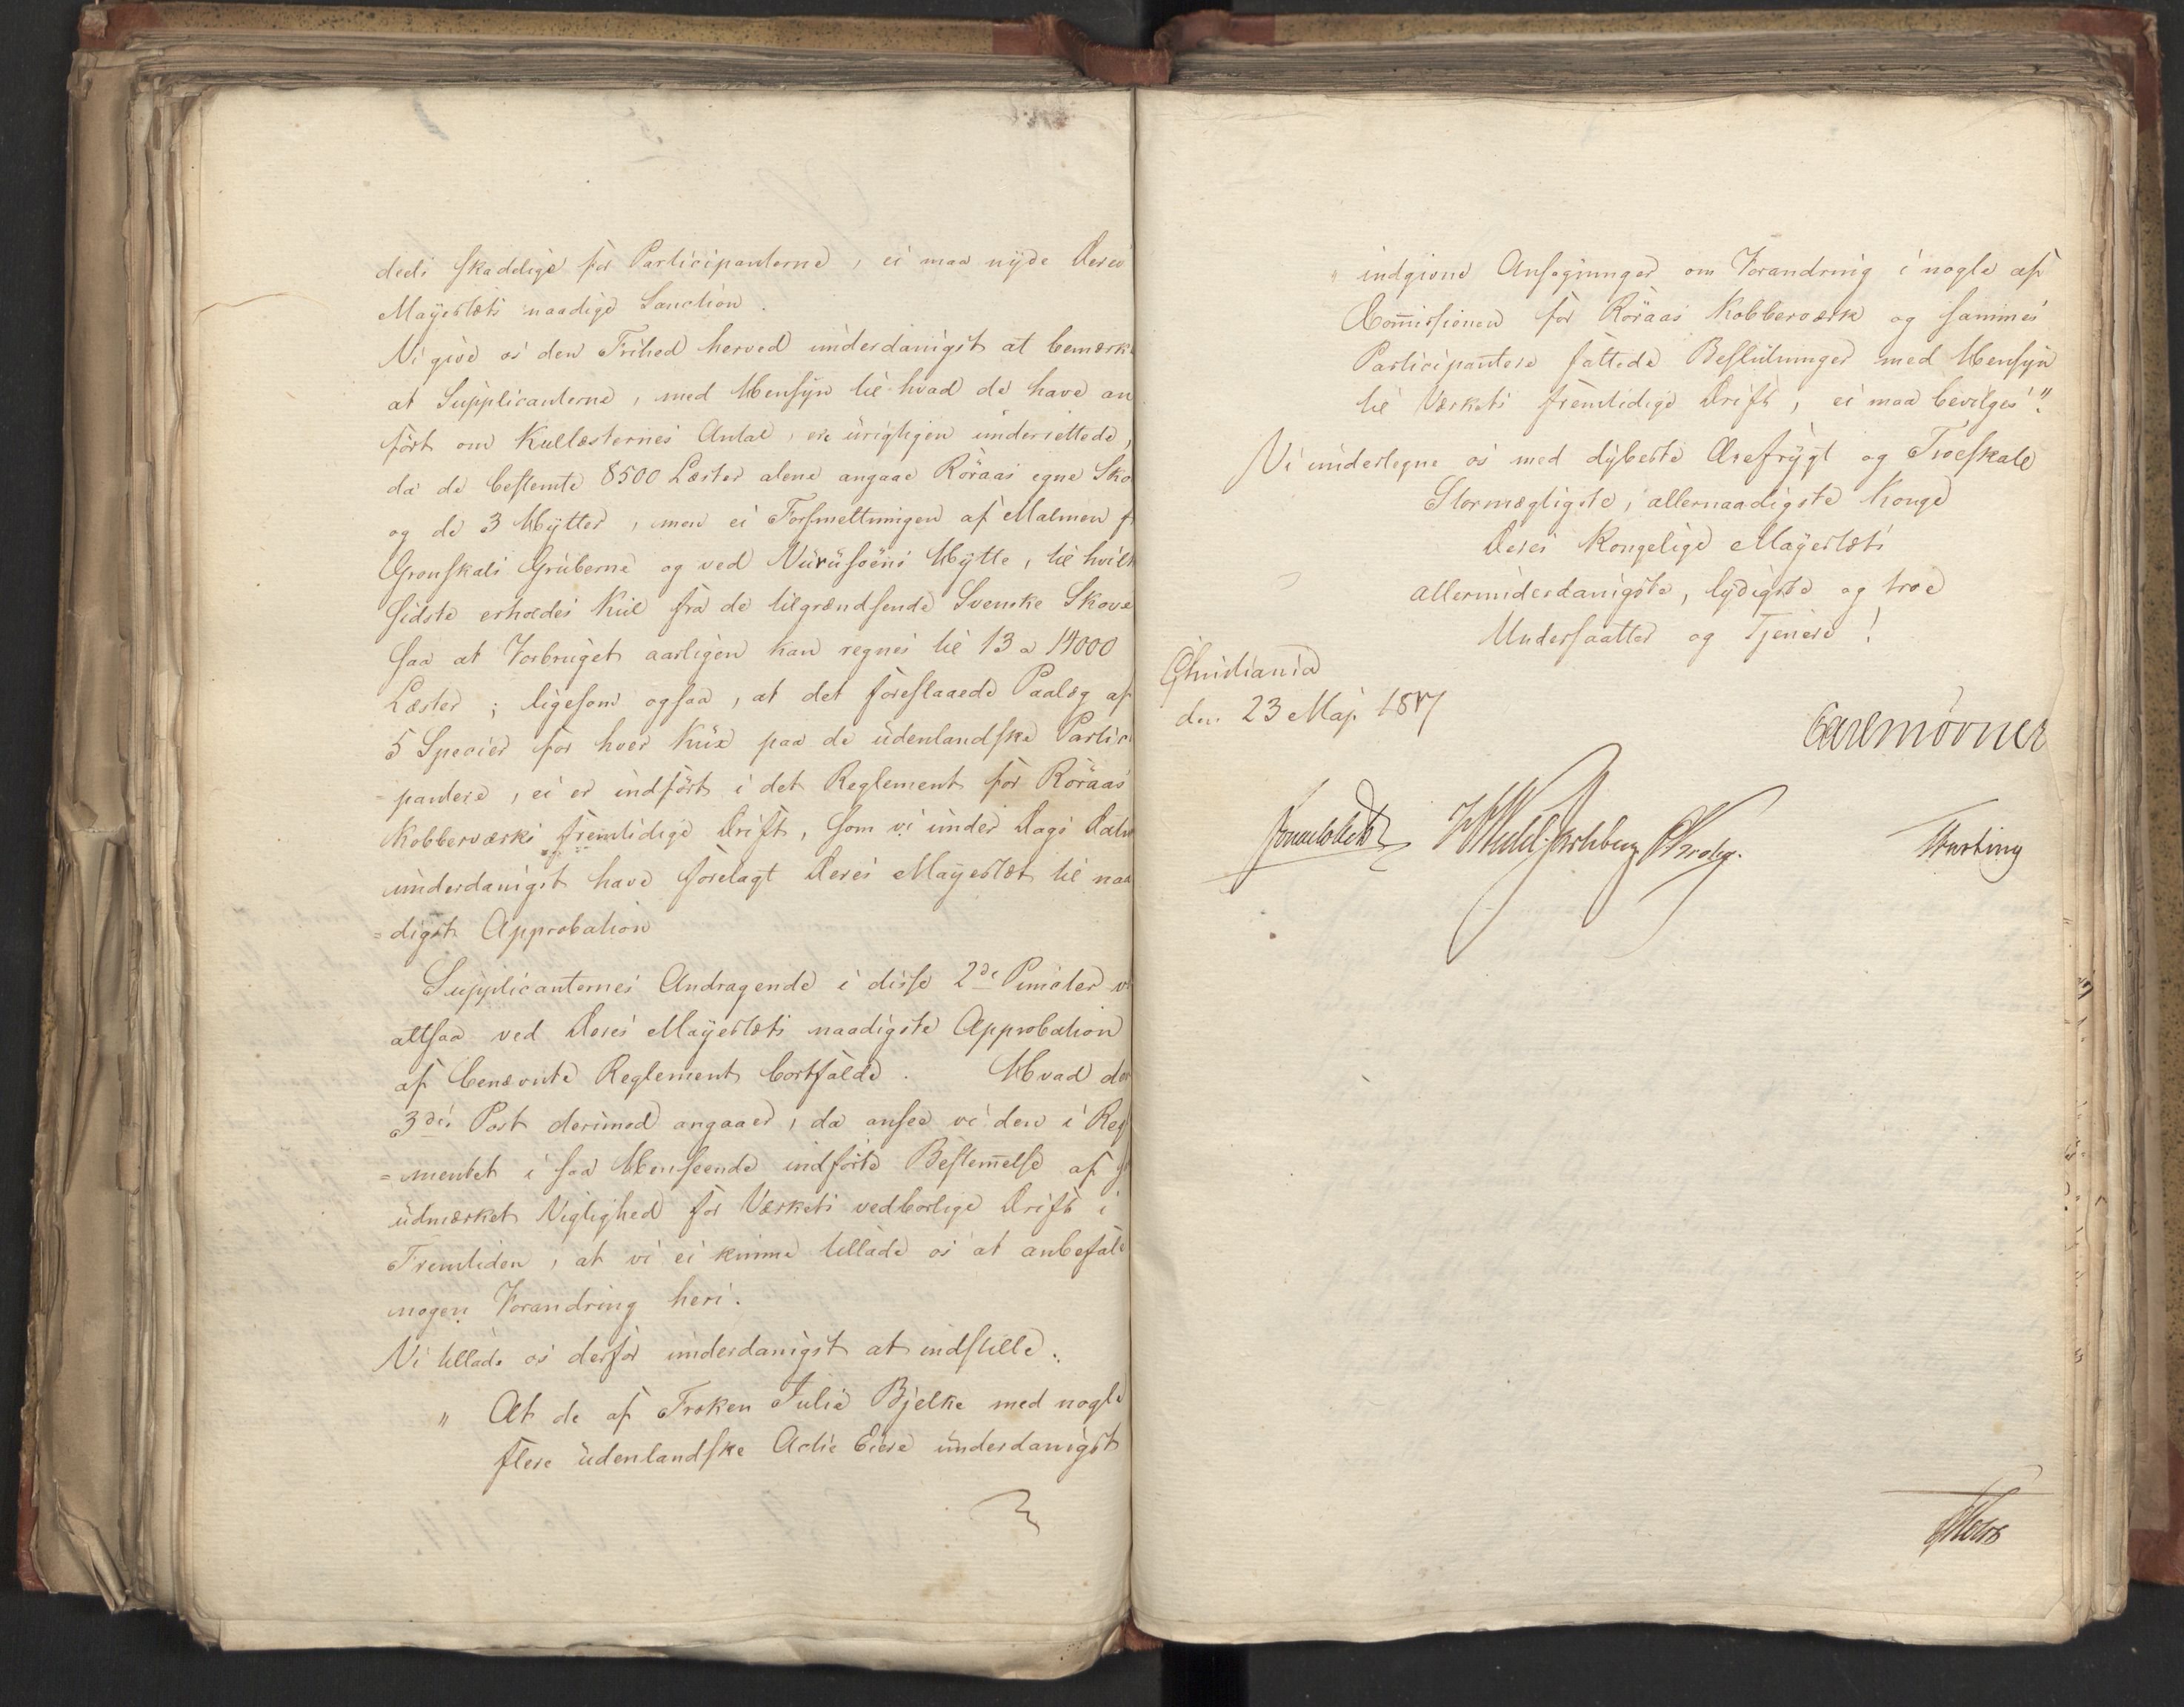 deels skadelige for Participanterne, ei maa nyde Deres
Mayestæts naadige Sanction.
Vi give os den Frihed herved underdanigst at bemærke
at Supplicanterne, med Hensyn til hvad de have an
ført om Kullæsternes Antal, ere urigtigen underrettede,
da de bestemte 8500 Læster alene angaae Röraas egne Sko
og de 3 Hytter, men ei Forsmeltningen af Malmen f
Gruberne og ved Hytte, til hvilk
sidste erholdes Kul fra de tilgrændsende Svenske Skove
saa at Forbruget aarligen kan regnes til 13 a 14000
Læster; ligesom ogsaa, at det foreslaaede Paalæg af
5 Specier for hver Kux paa de udenlandske Partici
=pantere, ei er indført i det Reglement for Röraas
Kobberværks fremtidige Drift, som vi under Dags Dato
underdanigst have forelagt Deres Mayestæt til naa
=digst Approbation
Supplicanternes Andragende i disse 2de Puncter v
altsaa ved Deres Mayestæts naadigste Approbation
af benævnte Reglement bortfalde. Hvad den
3die Post derimod angaaer, da ansee vi den i Reg
=mentet i saa Henseende indførte Bestem̄else af
udmærket Vigtighed for Værkets vedborlige Drift i
Fremtiden, at vi ei kunne tillade os at anbefale
nogen Forandring heri.
Vi tillade os derfor underdanigst at indstille:
" At de af Frøken Julie Bjelke med nogle
flere udenlandske Actie Eiere underdanigst
" indgivne Ansøgninger om Forandring i nogle af
Com̄issionen for Röraas Kobberværk og sammes
Participantere fattede Beslutninger med Hensyn
til Værkets fremtidige Drift, ei maa bevilges".
Vi undertegne os med dybeste Ærefrygt og Troeskab
Stormægtigste, allernaadigste Konge
Deres Kongelige Mayestæts
allerunderdanigste, lydigste og troe
Undersaatter og Tjenere!
Christiania
den 23 Maj 1817
Carl Mörner
Sommerhielm Krohg.
Motzfeldt